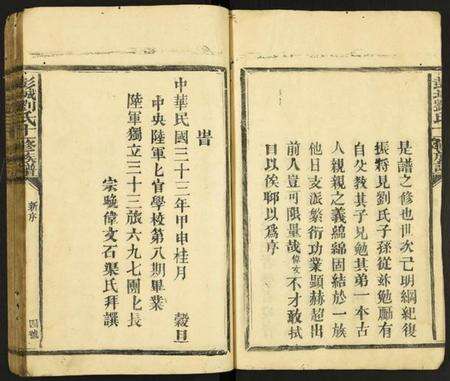 是譜之修也世次已明綱紀復
振將見劉氏子孫從玆勉勵有
自父教其子兄勉其弟一本古
人親親之義綿綿固結於一族
他日支派繁衍功業顯赫超出
前人豈可限量哉偉文不才敢拭
目以俟聊以爲序
旹
中華民國三十三年甲申桂月 穀旦
中央陸軍士官學校第八期畢業
陸軍獨立三十三旅六九七團長
宗晚偉文石渠氏拜譔
彭城劉氏十修族譜
新序
四號